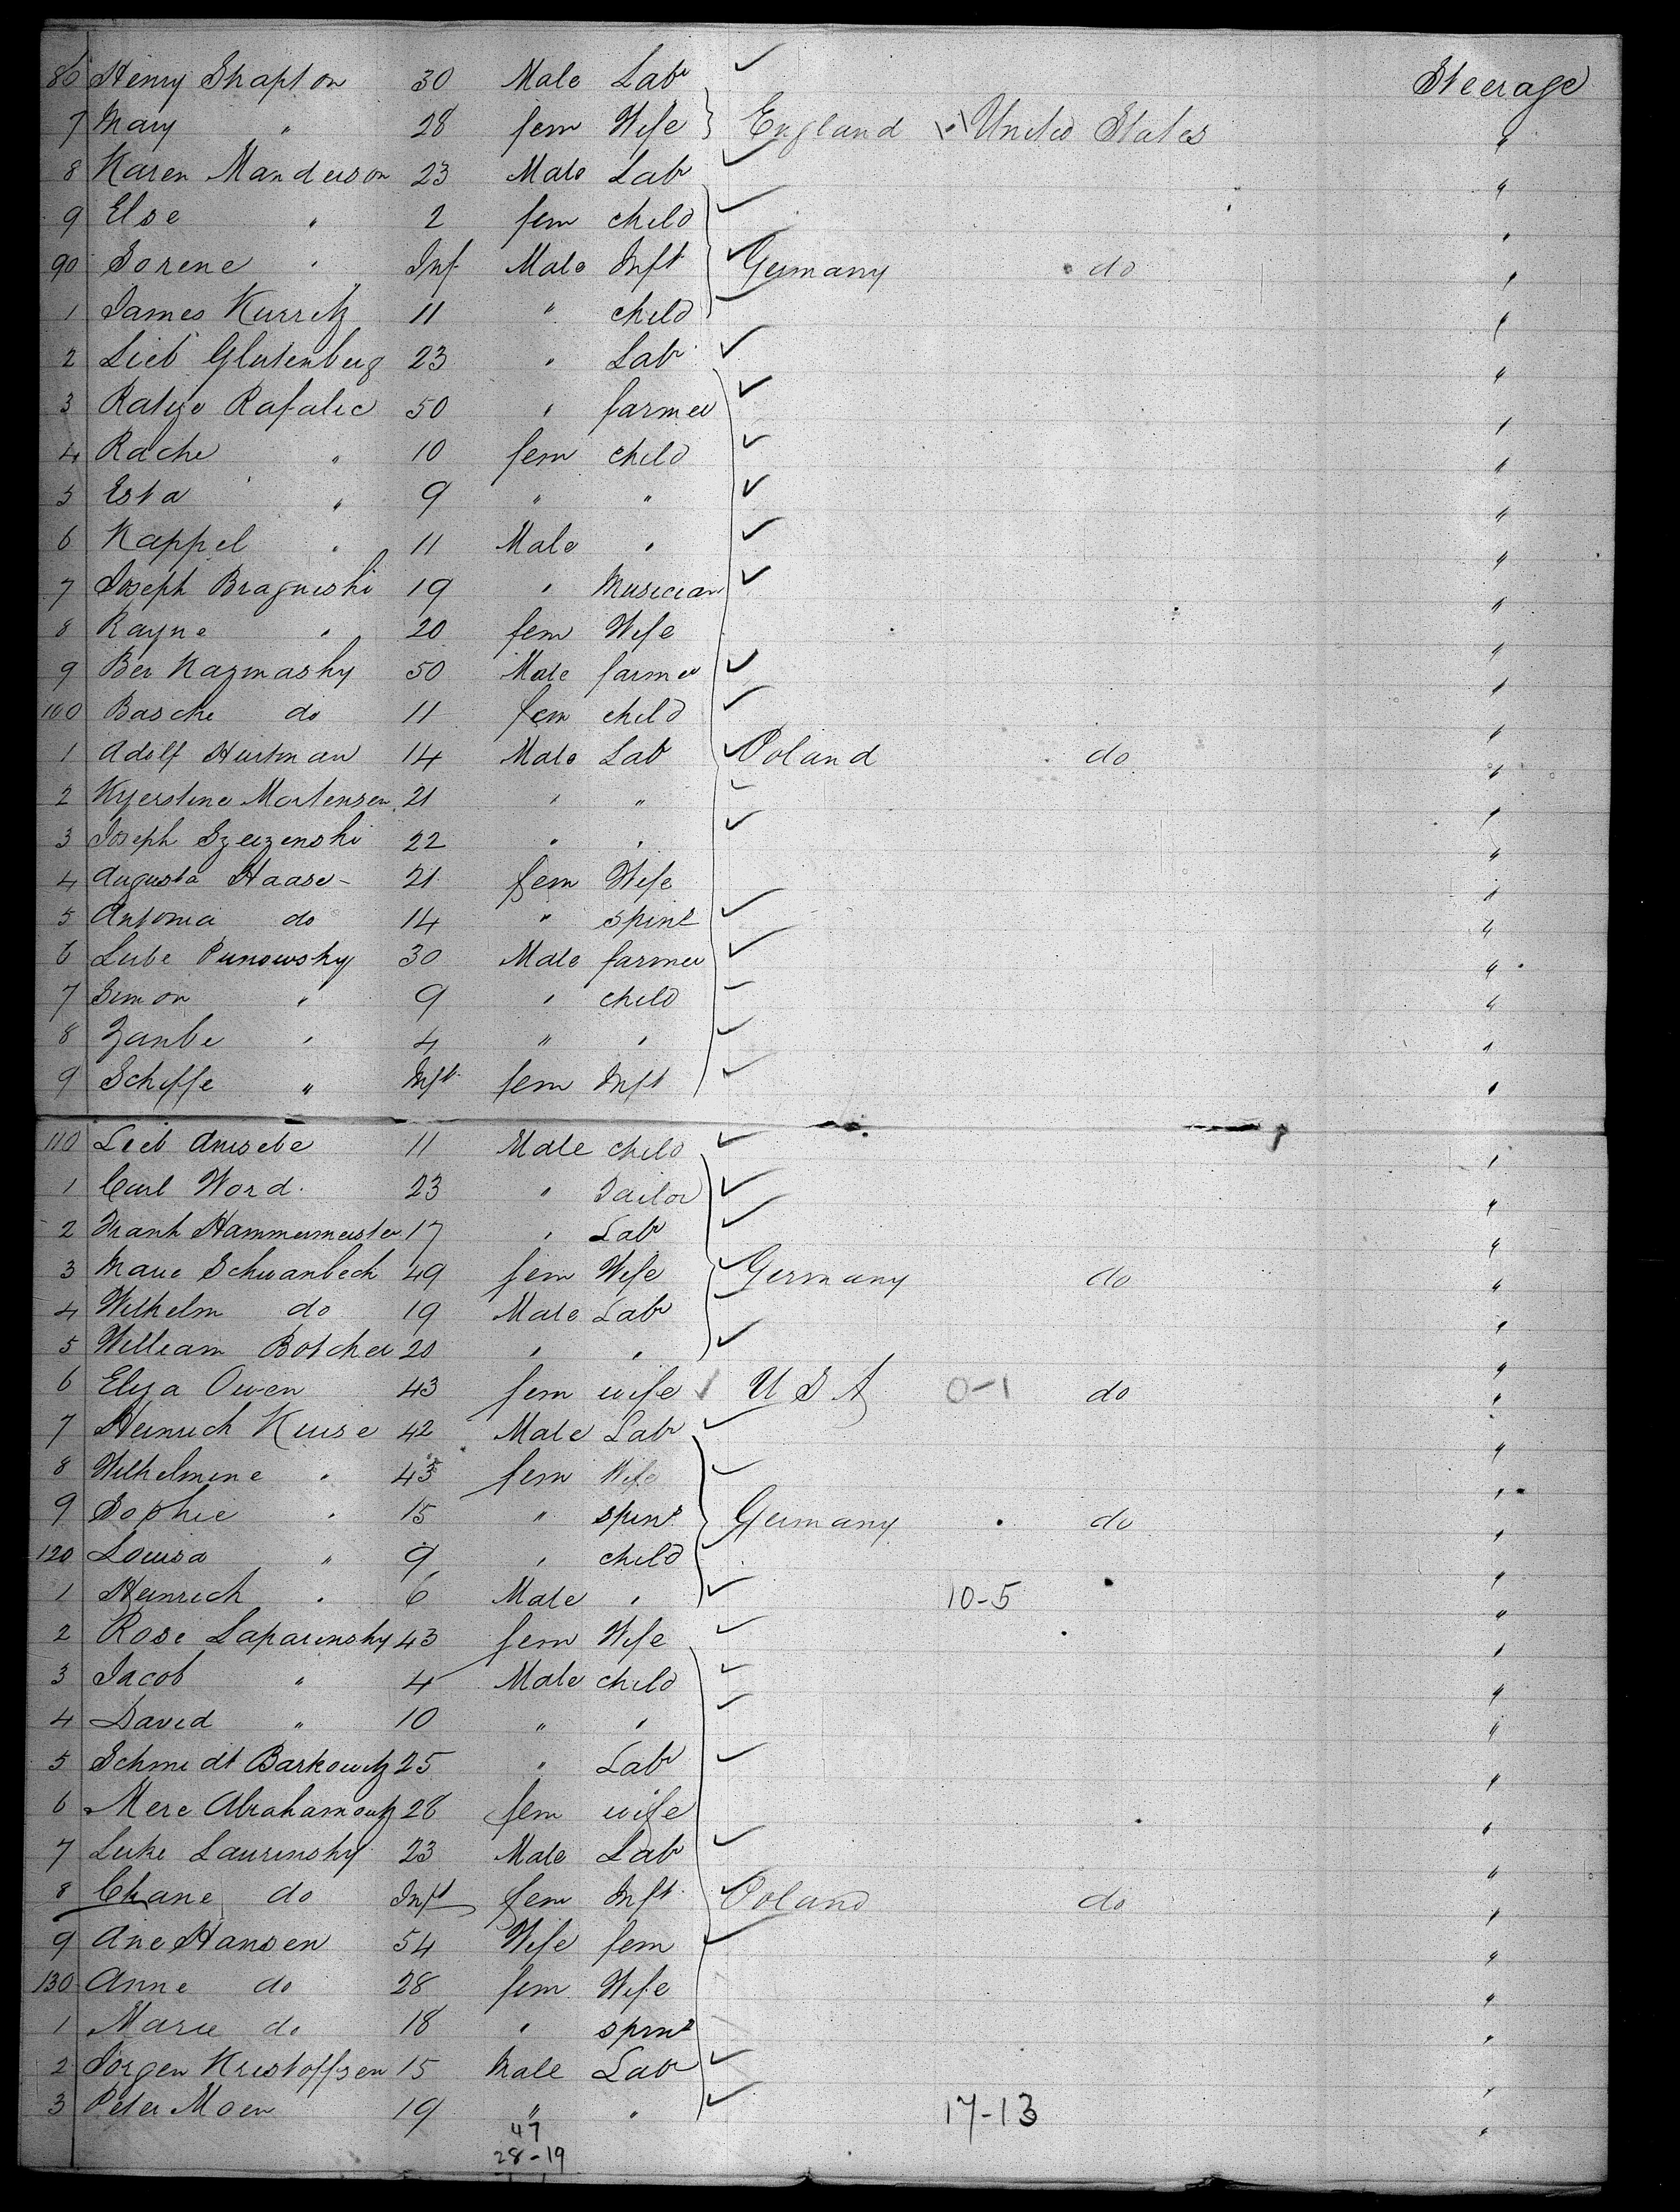 86 Henry Shapton 30 Male Lab ✓ Steerage
7 Mary " 28 fem Wife } England United States "
8 Karen Manderson 23 Male Lab ✓ "
9 Else " 2 fem child ✓ "
90 Sorene " Inf Male Inft ✓ Germany do "
1 James Kurritz 11 " child ✓ "
2 Lieb Glutenberg 23 " Lab ✓ "
3 Ratze Rafalic 50 " farmer ✓ "
4 Rache " 10 fem child ✓ "
5 Esta " 9 " " ✓ "
6 Kappel " 11 Male " ✓ "
7 Joseph Bragniski 19 " Musician ✓ "
8 Rayne " 20 fem Wife "
9 Ber Kazmasky 50 Male farmer ✓ "
100 Basche do 11 fem child ✓ "
1 Adolf Hurtman 14 Male Lab ✓ Poland do "
2 Kyerstine Mortensen 21 " " ✓ "
3 Joseph 22 " " ✓ "
4 Augusta Haase 21 fem Wife "
5 Antonia do 14 " spins ✓ "
6 Lube Punowsky 30 Male farmer ✓ "
7 Simon " 9 " child ✓ "
8 Zanbe " 4 " " ✓ "
9 Schiffe " Inft fem Inft ✓ "
110 Lieb 11 Male child ✓ "
1 Carl Word. 23 " Tailor ✓ "
2 Frank Hammermeister 17 " Lab ✓ "
3 Marie Schwanbech 49 fem Wife ✓ Germany do "
4 Wilhelm do 19 Male Lab ✓ "
5 William Botcher 20 " " ✓ "
6 Eliza Owen 43 fem wife ✓ U S A 0-1 do "
7 Heinrich Kruse 42 Male Lab ✓ "
8 Wilhelmine " 43 fem Wife ✓ "
9 Sophie " 15 " spins ✓ Germany do "
120 Louisa " 9 " child ✓ "
1 Heinrich " 6 Male " ✓ 10-5 "
2 Rose Laparinsky 43 fem Wife ✓ "
3 Jacob " 4 Male child ✓ "
4 David " 10 " " ✓ "
5 Schmidt Barkowitz 25 " Lab ✓ "
6 Mere Abrahamoutz 28 fem wife "
7 Luke Laurinsky 23 Male Lab ✓ "
8 Chane do Inft fem Inft ✓ Poland do "
9 Ane Hansen 54 Wife fem ✓ "
130 Anne do 28 fem Wife "
1 Marie do 18 " spins "
2 Jorgen Kristoffsen 15 Male Lab ✓ "
3 Peter Moen 19 " " ✓ 17-13 "
47
28-19